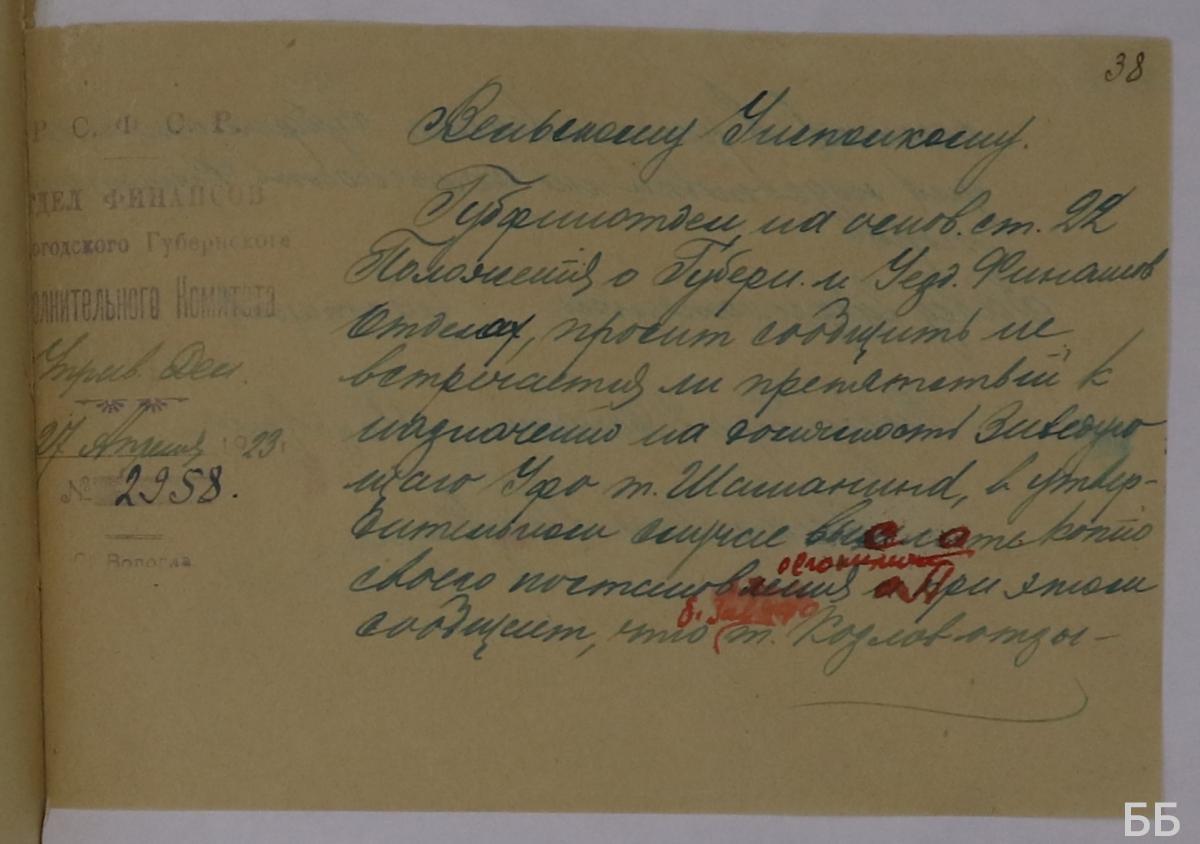 38
Р. С. Ф. С. Р.
ОТДЕЛ ФИНАНСОВ
огодского Губернского
олнительного Комитета
Управ Дел
27 Апреля 1923 г.
№ 2958.
г. Вологда
Вельскому Уисполкому.
Губфинотдел на основ. ст. 22
Положения о Губерн. и Уезд. Финансов
Отделах, просит сообщить не
встречается ли препятствий к
назначению на должность Заведую
щаго Уфо т. Шаманина, в утвер-
дительном случае выслать копию
своего постановления При этом
б. ЗавУфо
сообщает, что т. Козлов отзы-
ББ